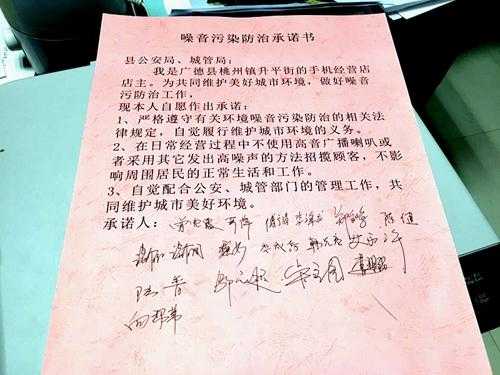 噪音污染防治承诺书
县公安局、城管局:
我是广德县桃州镇升平街的手机经营店
店主。为共同维护美好城市环境,做好噪音
污防治工作,
现本人自愿作出承诺:
1、严格遵守有关环境噪音污染防治的相关法
律规定,自觉履行维护城市环境的义务。
2、在日常经营过程中不使用高音广播喇叭或
者采用其它发出高噪声的方法招揽顾客,不影
响周围居民的正常生活和工作。
3、自觉配合公安、城管部门的管理工作,共
同维护城市美好环境。
承诺人: